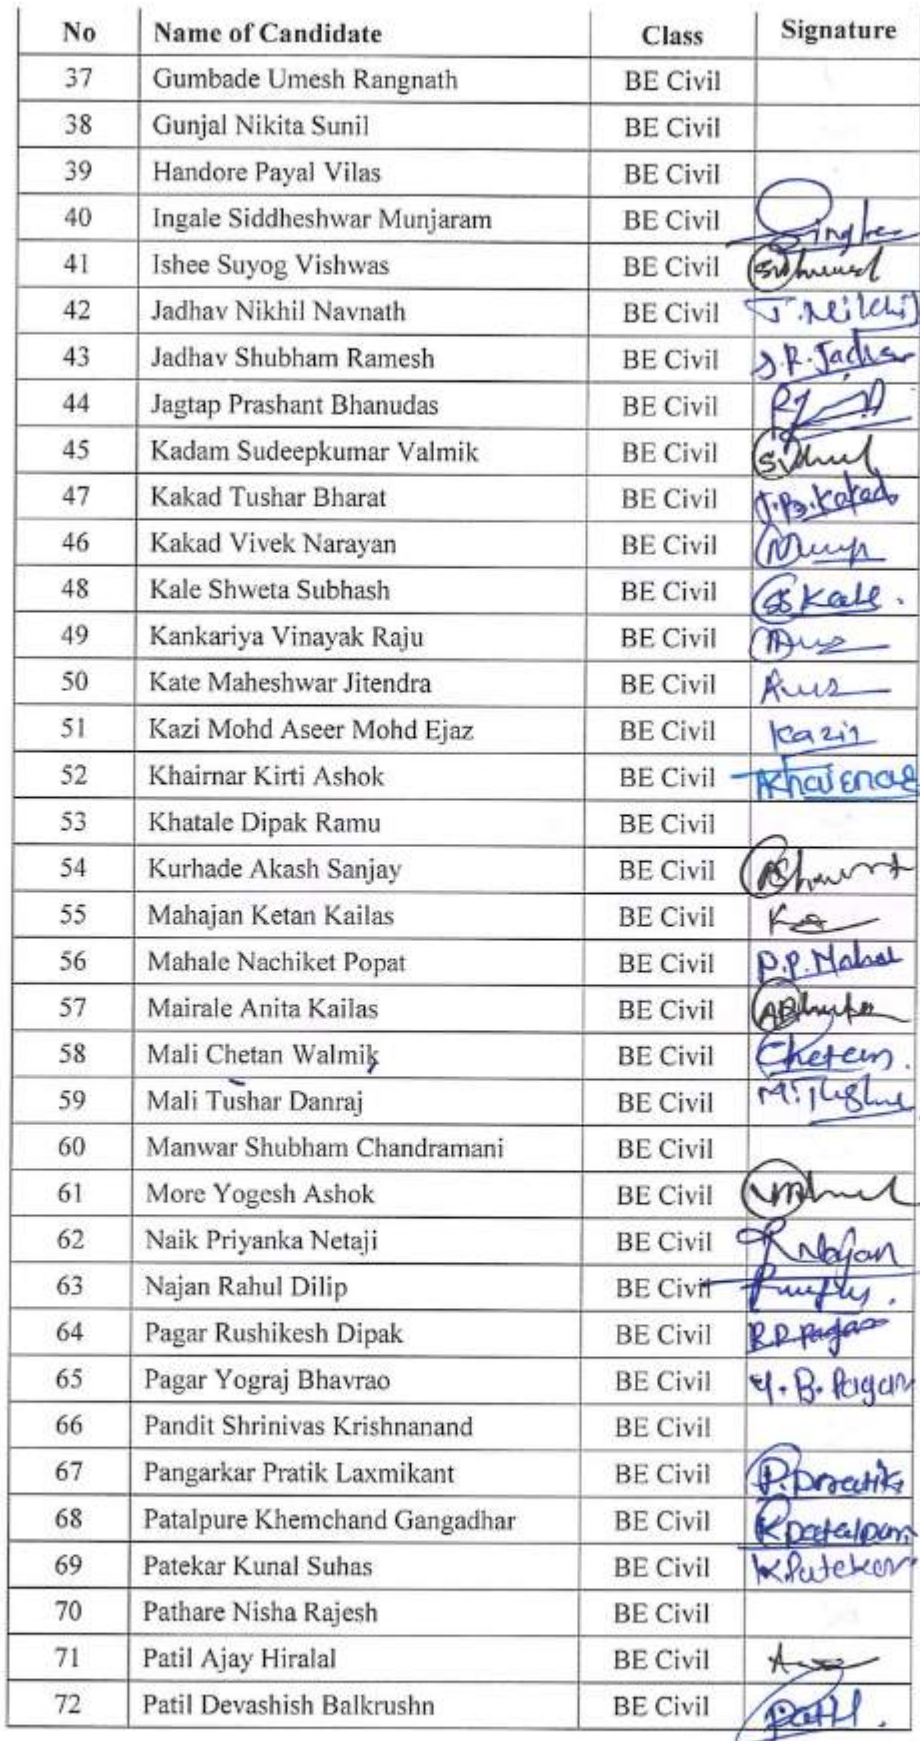 No Name of Candidate Class Signature
37 Gumbade Umesh Rangnath BE Civil
38 Gunjal Nikita Sunil BE Civil
39 Handore Payal Vilas BE Civil
40 Ingale Siddheshwar Munjaram BE Civil
41 Ishee Suyog Vishwas BE Civil
42 Jadhav Nikhil Navnath BE Civil J. Nikhil
43 Jadhav Shubham Ramesh BE Civil S.R. Jadhav
44 Jagtap Prashant Bhanudas BE Civil
45 Kadam Sudeepkumar Valmik BE Civil
47 Kakad Tushar Bharat BE Civil T.B. Kakad
46 Kakad Vivek Narayan BE Civil
48 Kale Shweta Subhash BE Civil SS Kale.
49 Kankariya Vinayak Raju BE Civil
50 Kate Maheshwar Jitendra BE Civil
51 Kazi Mohd Aseer Mohd Ejaz BE Civil
52 Khairnar Kirti Ashok BE Civil
53 Khatale Dipak Ramu BE Civil
54 Kurhade Akash Sanjay BE Civil
55 Mahajan Ketan Kailas BE Civil
56 Mahale Nachiket Popat BE Civil
57 Mairale Anita Kailas BE Civil
58 Mali Chetan Walmik BE Civil Chetan.
59 Mali Tushar Danraj BE Civil
60 Manwar Shubham Chandramani BE Civil
61 More Yogesh Ashok BE Civil
62 Naik Priyanka Netaji BE Civil
63 Najan Rahul Dilip BE Civil
64 Pagar Rushikesh Dipak BE Civil R.D. Pagar
65 Pagar Yograj Bhavrao BE Civil Y. B. Pagar
66 Pandit Shrinivas Krishnanand BE Civil
67 Pangarkar Pratik Laxmikant BE Civil P. Pratik
68 Patalpure Khemchand Gangadhar BE Civil
69 Patekar Kunal Suhas BE Civil K Patekar
70 Pathare Nisha Rajesh BE Civil
71 Patil Ajay Hiralal BE Civil
72 Patil Devashish Balkrushn BE Civil